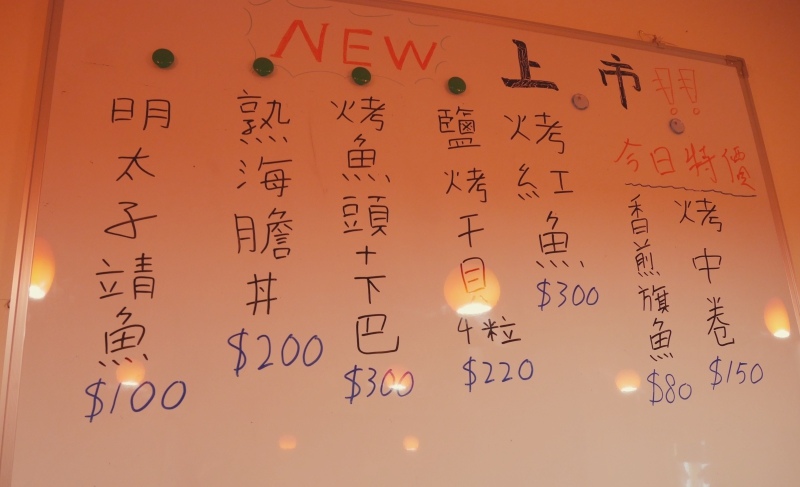 NEW 上市!!
明太子靖魚
$100
熟海膽丼
$200
烤魚頭+下巴
$300
鹽烤干貝
4粒
$220
烤紅魚
$300
今日特價
香煎旗魚
$80
烤中卷
$150